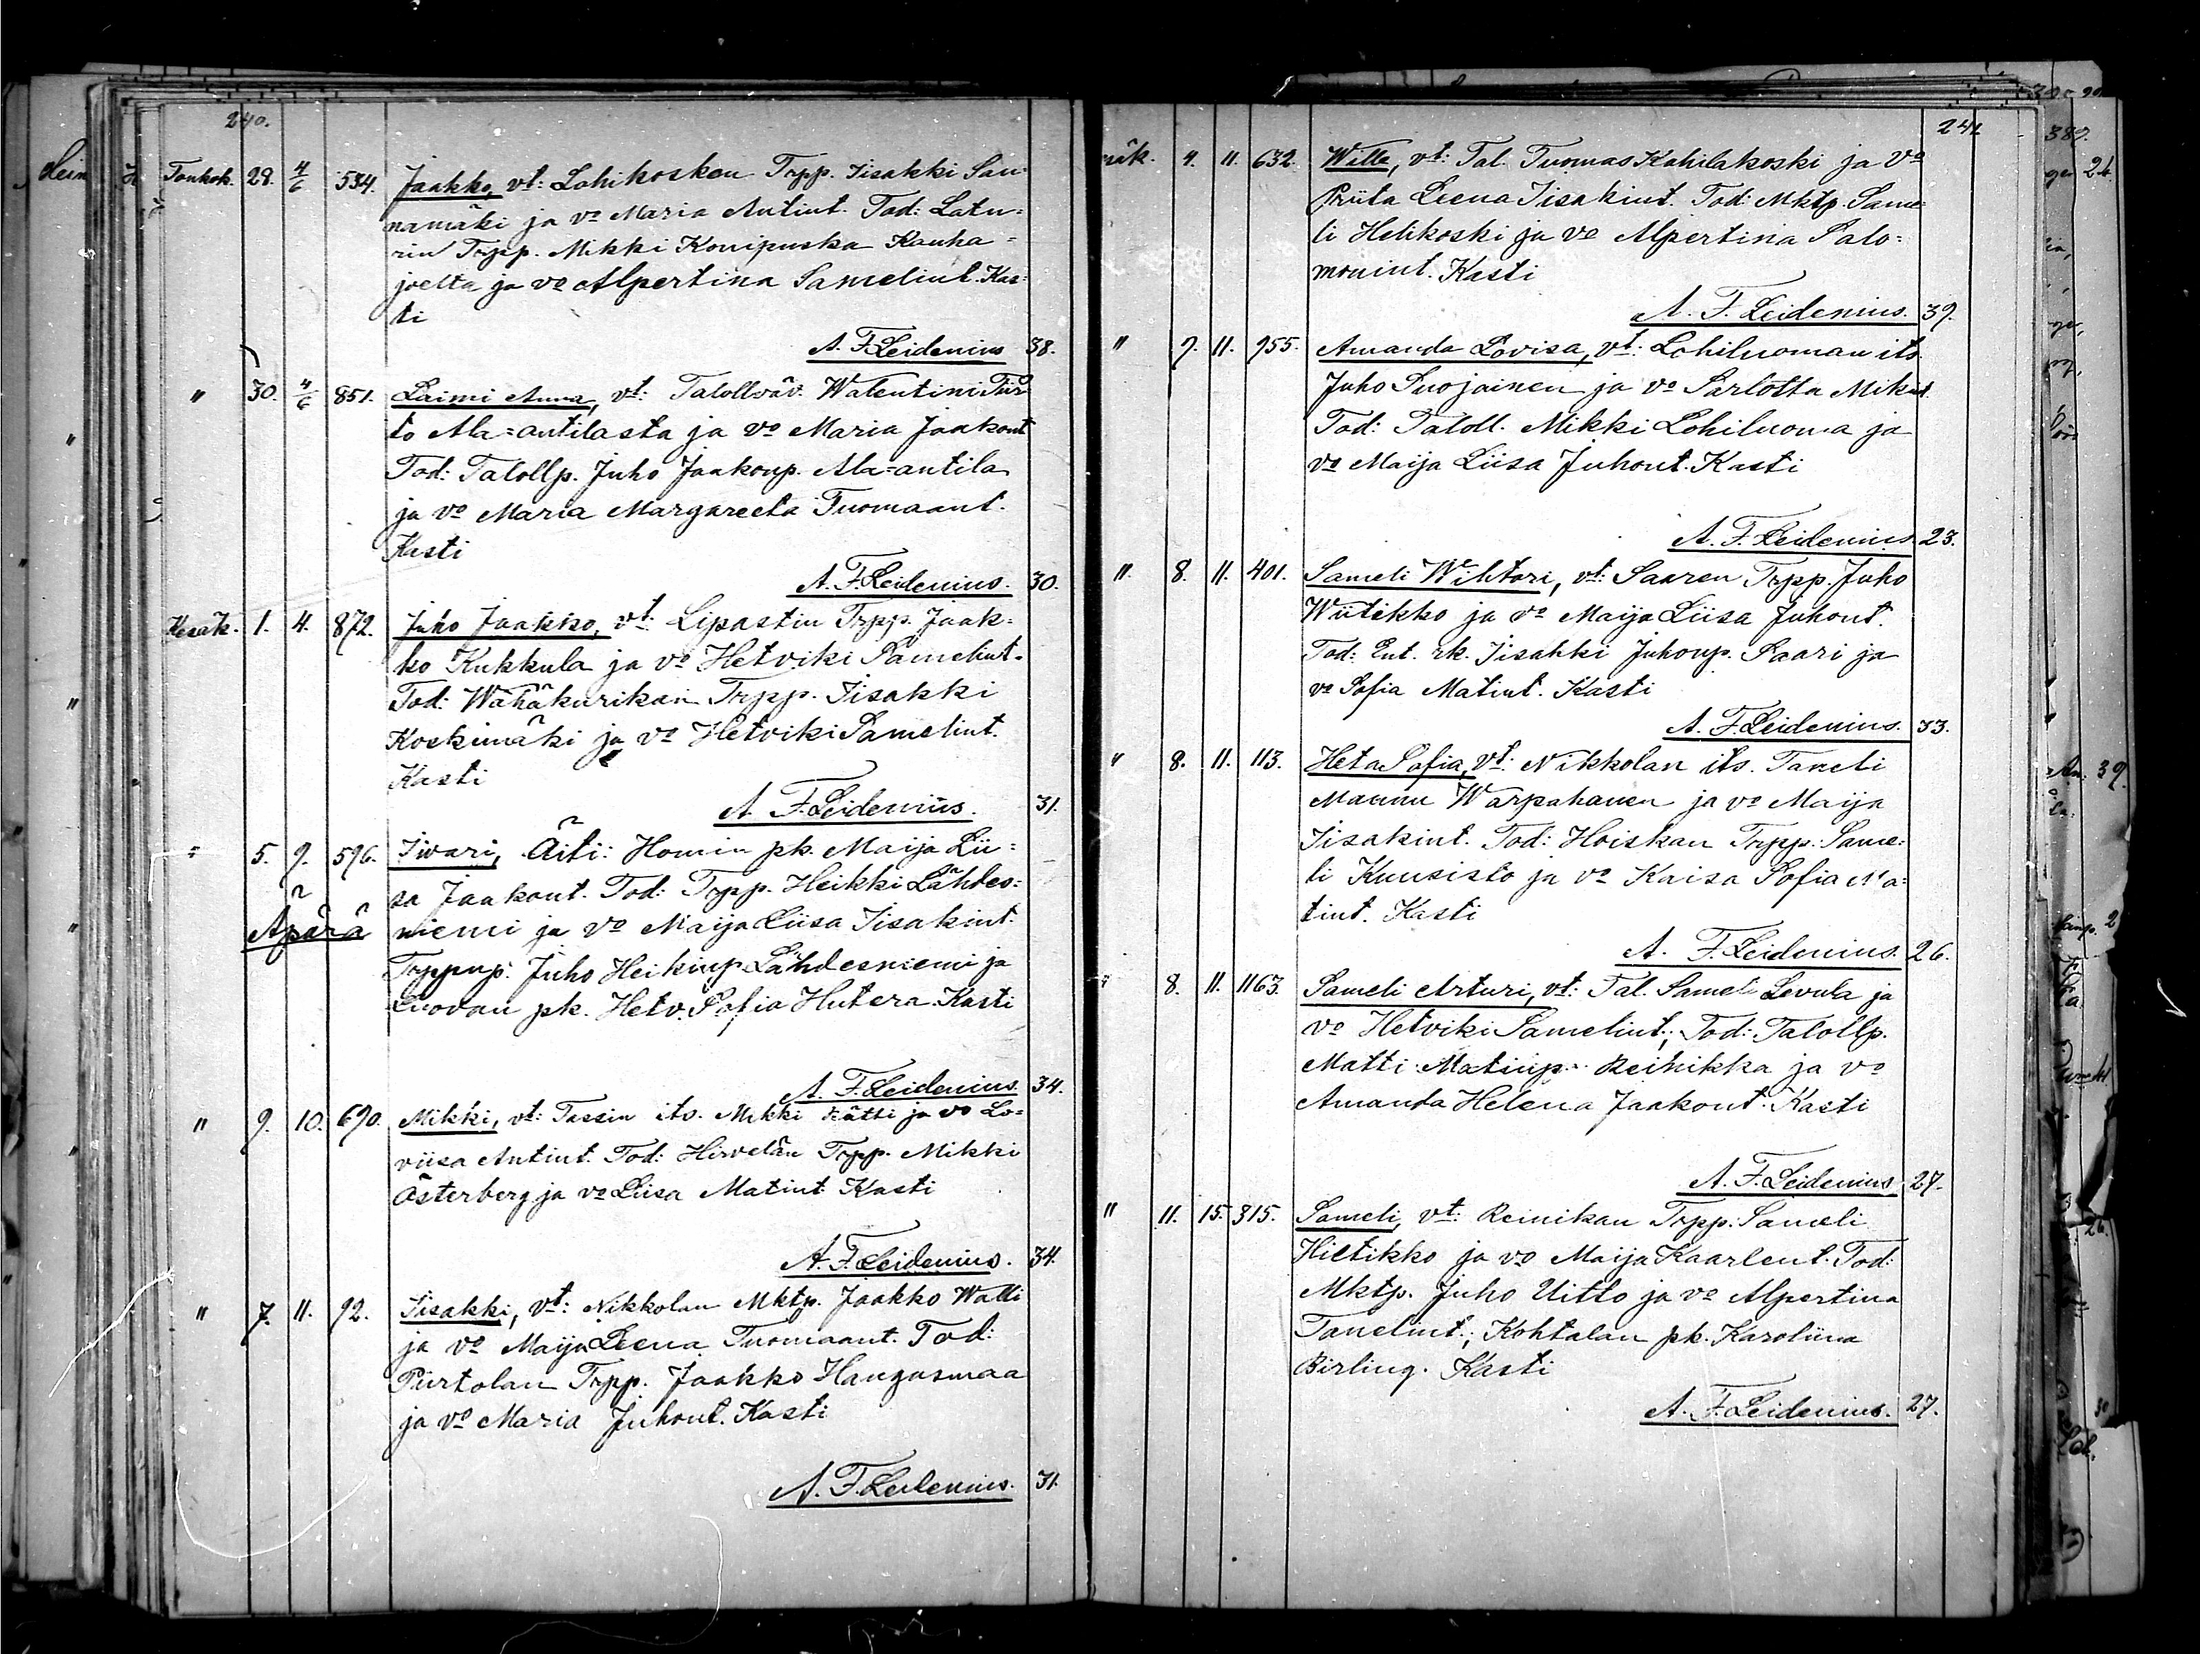 240.
Toukok. 29. 4/6 534. Jaakko, vt: Lohikosken Trpp. Iisakki San-
namäki ja vo Maria Antint. Tod: Latu-
rin Trpp. Mikki Konipuska Kauha-
joelta ja vo Alpertina Samelint. Kas-
ti
A. F. Leidenius 38.
" 30. 4/6 851. Laimi Anna, vt: Talollväv. Walentin Piir
to Ala=antilasta ja vo Maria Jaakont
Tod: Talollp. Juho Jaakonp. Ala=antila
ja vo Maria Margareeta Tuomaant.
Kasti
A. F. Leidenius. 30.
Kesäk. 1. 4. 872. Juho Jaakko, vt: Lipastin Trpp. Jaak-
ko Kukkula ja vo Hetviki Samelint.
Tod: Wähäkurikan Trpp. Iisakki
Koskimäki ja vo Hetviki Samelint.
Kasti
A. F. Leidenius. 31.
" 5. 9. 596. Iivari, Äiti: Homin pk. Maija Lii-
sa Jaakont. Tod: Trpp. Heikki Lähdes-
Äpärä niemi ja vo Maija Liisa Iisakint.
Trppnp. Juho Heikinp. Lähdesniemi ja
Luovan pk. Hetv. Sofia Hutera. Kasti
A. F. Leidenius. 34.
" 9. 10. 690. Mikki, vt: Tassin its. Mikki Kätti ja vo Lo-
viisa Antint. Tod: Hirvelän Trpp. Mikki
Österberg ja vo Liisa Matint. Kasti
A. F. Leidenius. 34.
" 7. 11. 92. Iisakki, vt: Nikkolan Mktp. Jaakko Walli
ja vo Maija Leena Tuomaant. Tod:
Piirtolan Trpp. Jaakko Hangasmaa
ja vo Maria Juhont. Kasti
A. F. Leidenius. 31.
241
äk. 4. 11. 632. Wille, vt: Tal. Tuomas Kahilakoski ja vo
Priita Leena Iisakint. Tod: Mktp. Same-
li Helikoski ja vo Alpertina Salo-
monint. Kasti
A. F. Leidenius. 39.
" 9. 11. 955. Amanda Lovisa, vt: Lohiluoman its.
Juho Suojainen ja vo Sarlotta Mikint.
Tod: Taloll. Mikki Lohiluoma ja
vo Maija Liisa Juhont. Kasti
A. F. Leidenius. 23.
" 8. 11. 401. Sameli Wihtori, vt: Saaren Trpp. Juho
Wiitikko ja vo Maija Liisa Juhont.
Tod: Ent. rk. Iisakki Juhonp. Saari ja
vo Sofia Matint. Kasti
A. F. Leidenius. 33.
" 8. 11. 113. Heta Sofia, vt: Nikkolan its. Taneli
Mannu Warpahanen ja vo Maija
Iisakint. Tod: Hoiskan Trpp. Same-
li Kuusisto ja vo Kaisa Sofia Ma-
tint. Kasti
A. F. Leidenius. 26.
" 8. 11. 1163. Sameli Arturi, vt: Tal. Sameli Levula ja
vo Hetviki Samelint; Tod: Talollp.
Matti Matinp. Reinikka ja vo
Amanda Helena Jaakont. Kasti
A. F. Leidenius. 27.
" 11. 15. 315. Sameli, vt: Reinikan Trpp. Sameli
Hietikko ja vo Maija Kaarlent. Tod:
Mktp. Juho Uitto ja vo Alpertina
Tanelint.; Kohtalan pk. Karoliina
Birling. Kasti
A. F. Leidenius. 27.